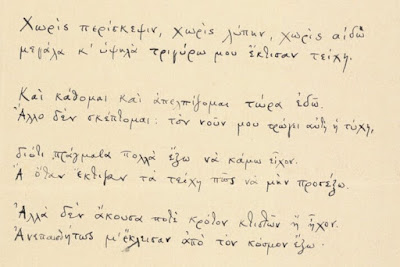 Χωρὶς περίσκεψιν, χωρὶς λύπην, χωρὶς αἰδὼ
μεγάλα κ' ὑψηλὰ τριγύρω μου ἔκτισαν τείχη.
Καὶ κάθομαι καὶ ἀπελπίζομαι τώρα ἐδῶ.
Ἄλλο δὲν σκέπτομαι: τὸν νοῦν μου τρώγει αὐτὴ ἡ τύχη,
διότι πράγματα πολλὰ ἔξω νὰ κάμω εἶχον.
Ἆ ὅταν ἔκτιζαν τὰ τείχη πῶς νὰ μὴν προσέξω.
Ἀλλὰ δὲν ἄκουσα ποτὲ κρότον κτιστῶν ἢ ἦχον.
Ἀνεπαισθήτως μ' ἔκλεισαν ἀπὸ τὸν κόσμον ἔξω.